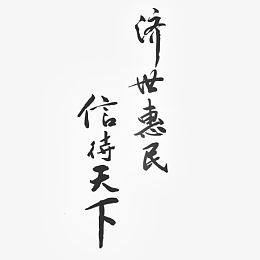 济世惠民
信待天下